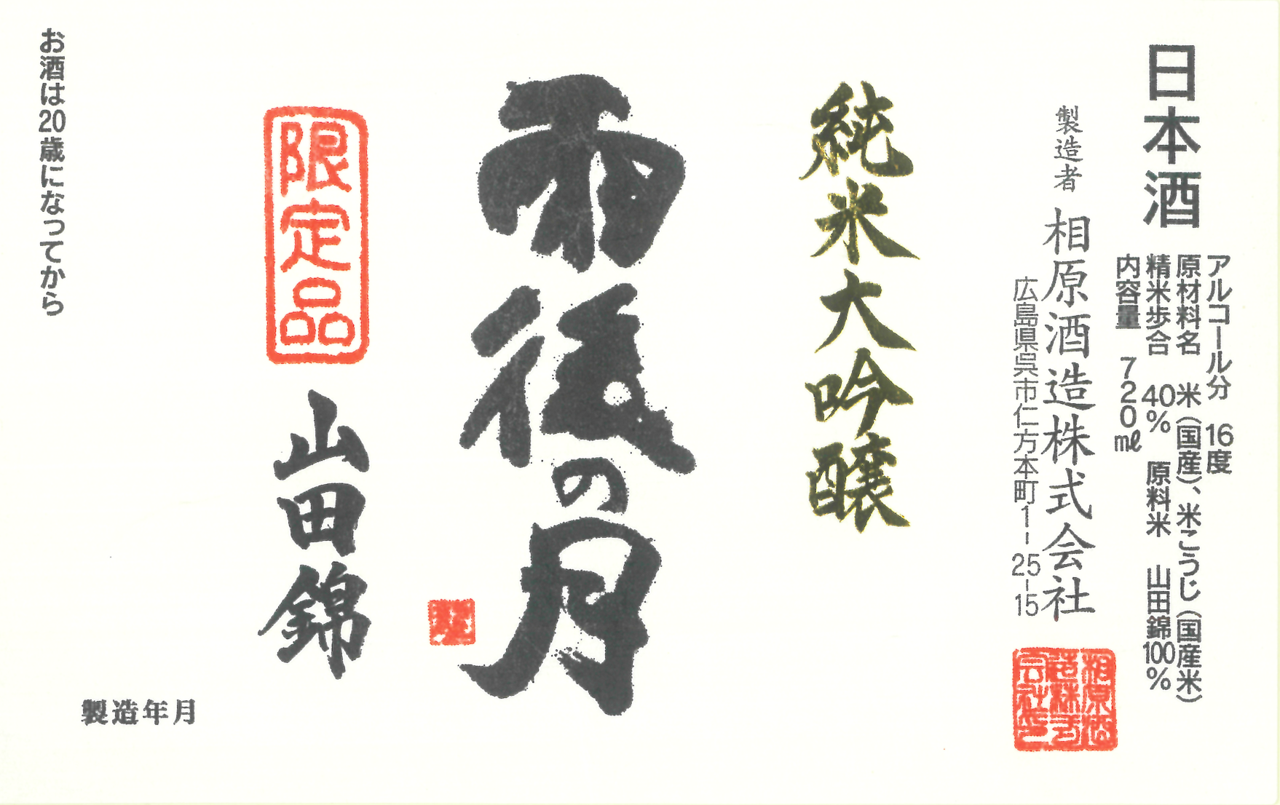 日本酒
アルコール分 16度
原材料名 米(国産)、米こうじ(国産米)
精米歩合 40% 原料米 山田錦100%
内容量 720㎖
製造者 相原酒造株式会社
広島県呉市仁方本町1-25-15
純米大吟醸
雨後の月
限定品
山田錦
お酒は20歳になってから
製造年月